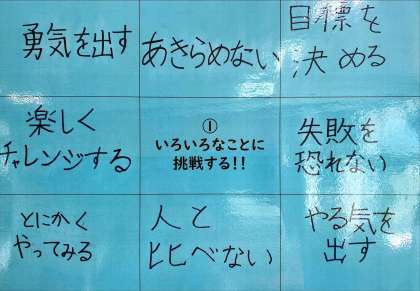 勇気を出す
あきらめない
目標を
決める
楽しく
チャレンジする
①
いろいろなことに
挑戦する!!
失敗を
恐れない
とにかく
やってみる
人と
比べない
やる気を
出す